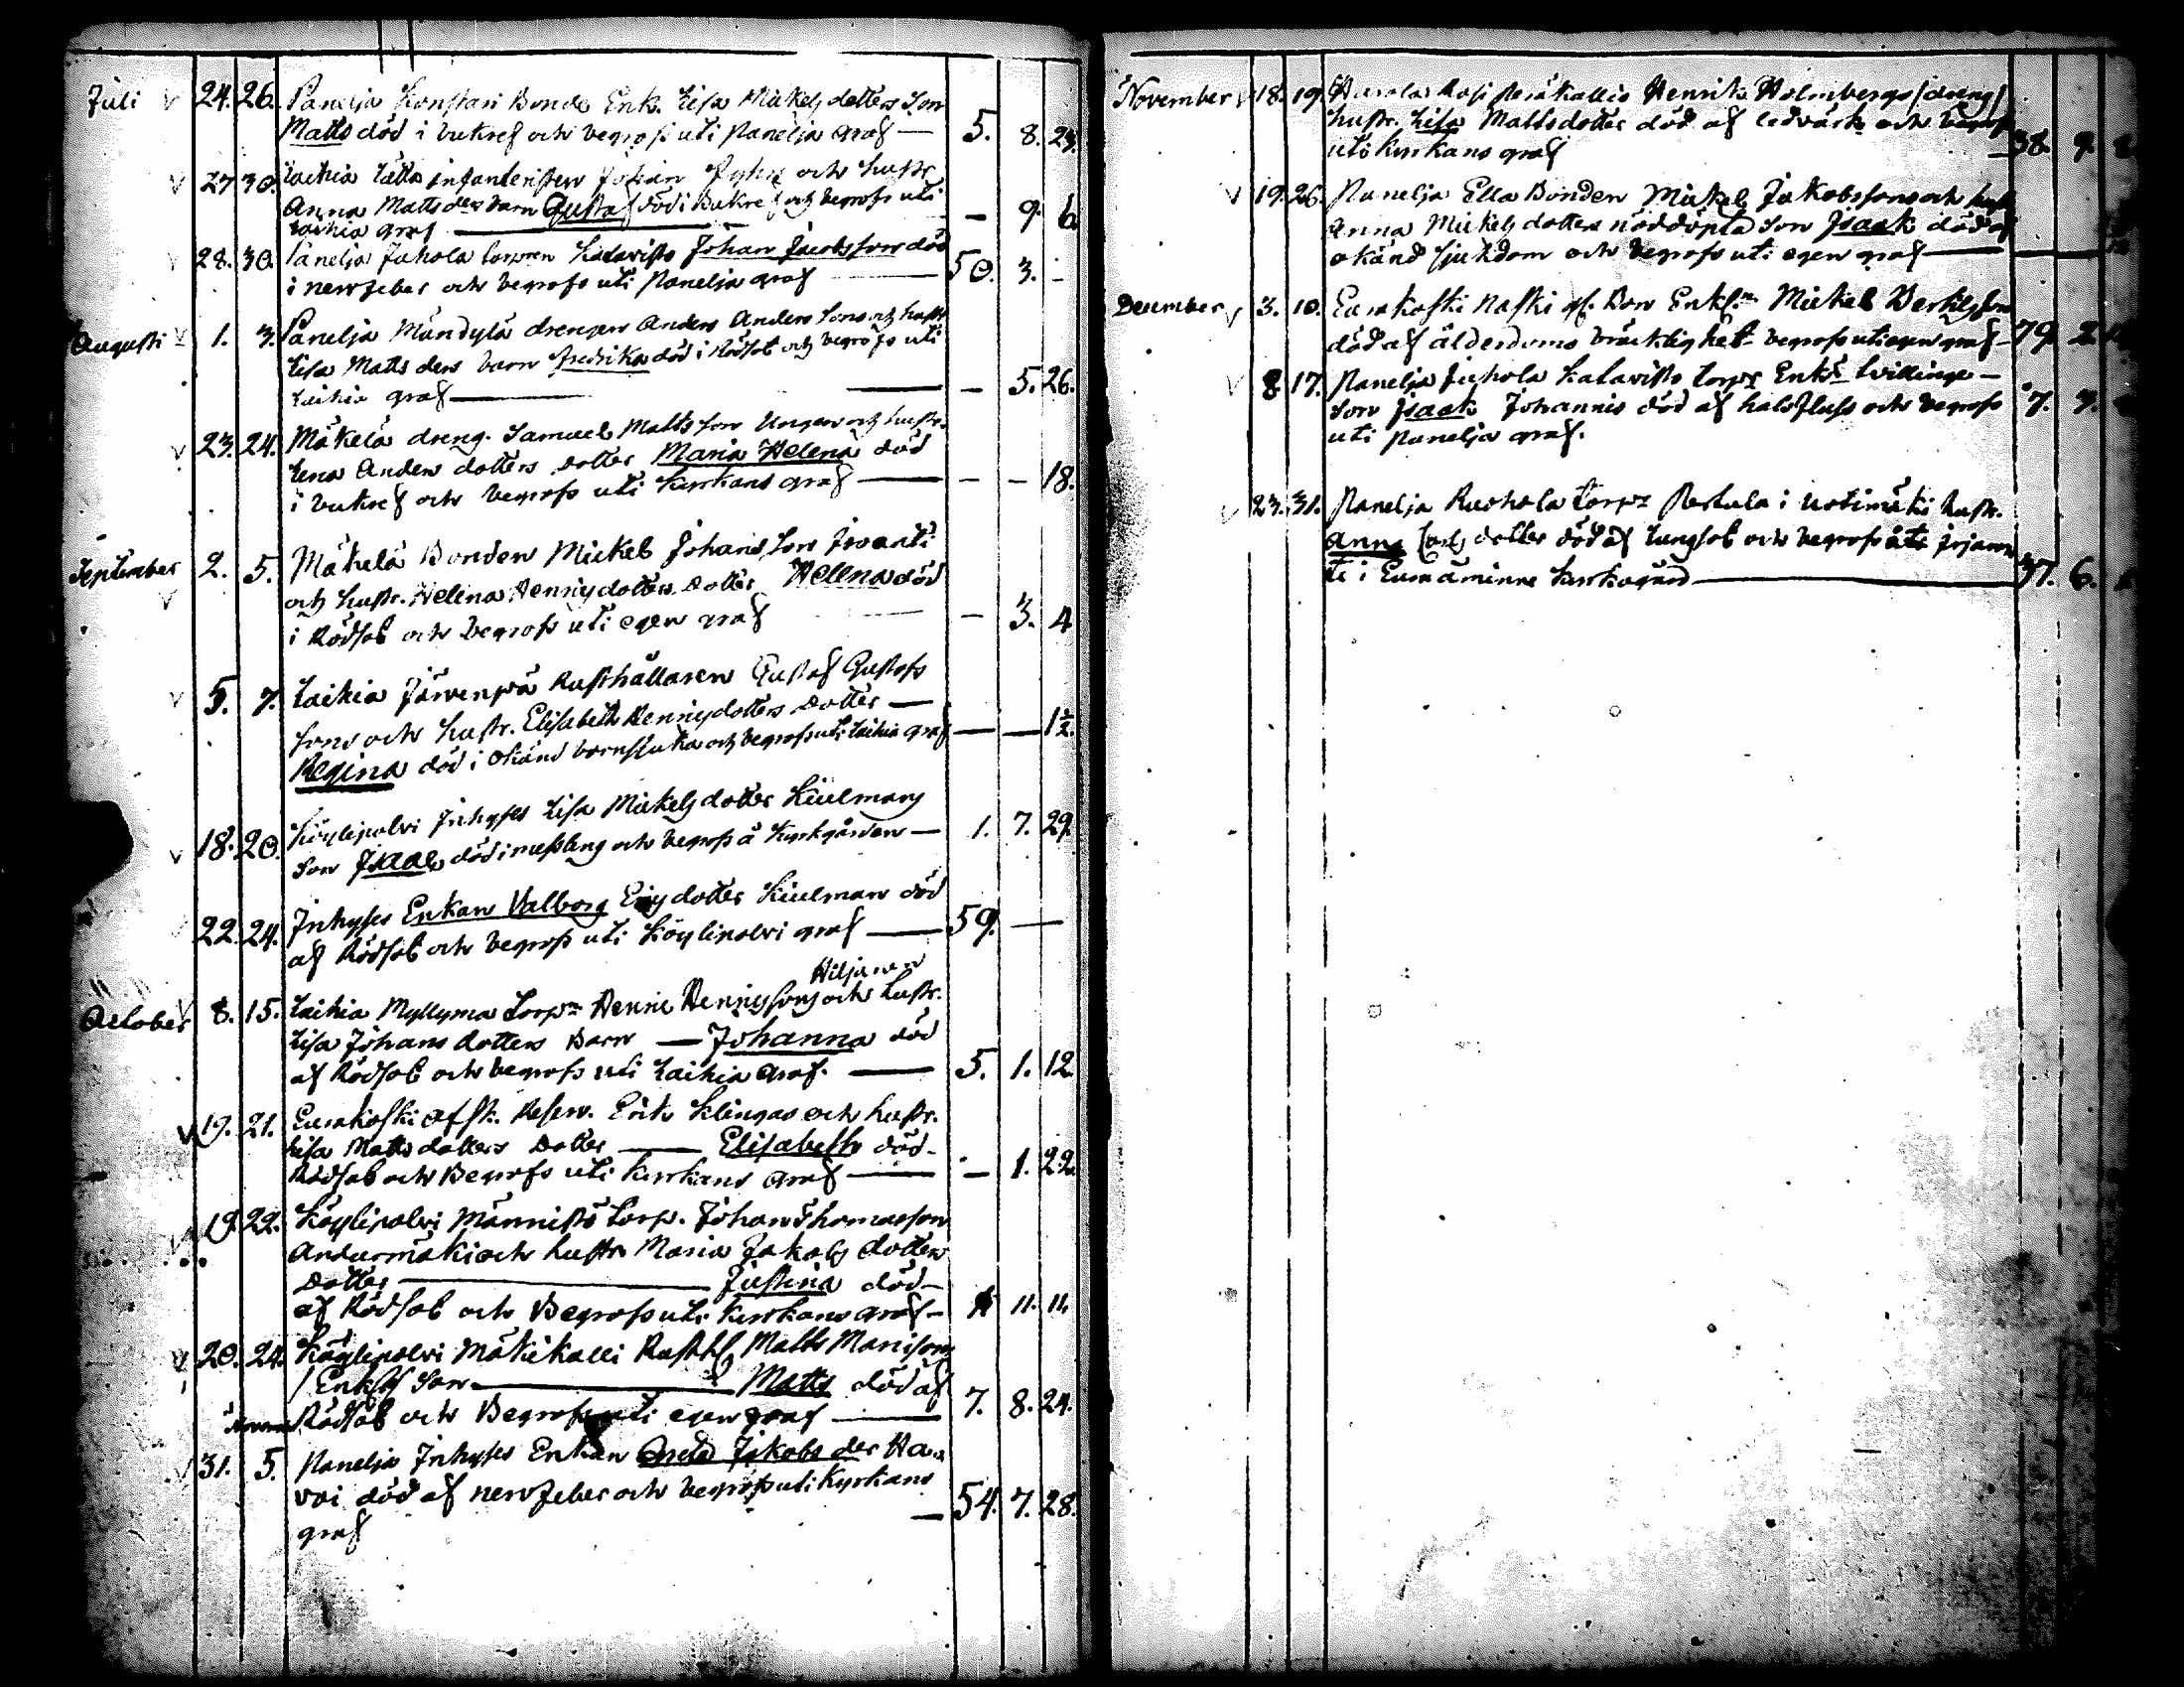 Juli 24. 26. Panelia Konstari Bonde Enk. Lisa Mickels dotters Son
Matts död i bukref och begrofs uti Panelja graf — 5. 8. 23.
27 30. Laihia Lätto infanteristen Johan och hustr.
Anna Matts ders barn Gustaf död i Bukref och begrofs uti — 9. 6.
Laihia graf
28. 30. Panelja Juhola torparen Katavisto Johan Jacobsson död
i nervfeber och begrofs uti Panelja graf — 50. 3. -
Augusti 1. 3. Panelja Mundylä drengen Anders Anders Sons och hustr
Lisa Matts ders barn Fredrika död i Rödsot och begrofs uti
Laihia graf — — 5. 26.
23. 24. Mäkelä dreng. Samuel Matts son Ungers och hustr.
Lena Anders dotters dotter Maria Helena död
i bukref och begrofs uti Kirkans graf — — — 18.
September 2. 5. Mäkelä Bonden Mickel Johans Son Iwanti
och hustr. Helena Henriks dotters dotter Helena död
i Rödsot och begrofs uti egen graf — 3. 4
5. 7. Laihia Järvenpä Rusthållaren Gustaf Gustafs
sons och hustr. Elisabeth Henriks dotters dotter —
Regina död i okänd barnsjuka och begrofs uti Laihia graf — — 1½.
18. 20. Köylipolvi Inhyses Lisa Mickels dotter Kiulmans
Son Isaac död i messling och begrofs å Kyrkgården — 1. 7. 29.
22. 24. Inhyses Enkan Valborg Erics dotter Kiulman död
af Rödsot och begrofs uti Köylipolvi graf — 59. —
Hiljanen
October 8. 15. Laihia Myllymä Torpn Henric Henrikssons och hustr.
Lisa Johans dotters Barn — Johanna död
af Rödsot och begrofs uti Laihia graf. — 5. 1. 12.
19. 21. Eurakoski afsk. Reserv. Erik Klingas och hustr.
Lisa Matts dotters Dotter — Elisabeth död
Rödsot och Begrofs uti Kirkans graf — — 1. 22.
19. 22. Köylipolvi Männistö Torp. Johan Thomasson
Andurmäki och hustr Maria Jakobs dotters
Dotter — Justina död —
af Rödsot och Begrofs uti Kirkans graf — 11. 11.
20. 24. Köylipolvi Mäkikalli Rusth. Matts
Son — Matts död af
Rödsot och Begrofs uti egen graf — 7. 8. 24.
31. 5. Panelja Inhyses Enkan Jakobs der Ha-
voi död af nervfeber och begrofs uti Kyrkans
graf — 54. 7. 28.
November 18. 19. Henrik Holmbergs (dreng)
hustr. Lisa Mattsdotter död af ledvärk och begrofs
uti Kirkans graf — 38. 9.
19. 26. Panelja Ella Bonden Mickel Jakobssons och
Anna Mickels dotters nöddöpta Son Isaak död af
okänd sjukdom och begrofs uti egen graf —
December 3. 10. Eurakoski Bon Mickel
död af ålderdoms bräcklighet begrofs uti egen graf — 79 2.
8 17. Panelja Juhola Katavisto torps Enks tvillinge —
Son Isaak Johannis död af halsfluss och begrofs 7. 7.
uti Panelja graf.
23. 31. Panelja Ruohola torpr i hustr.
Anna dotter död af lungsot och begrofs
i Euraåminne Kirkogård — 37. 6.